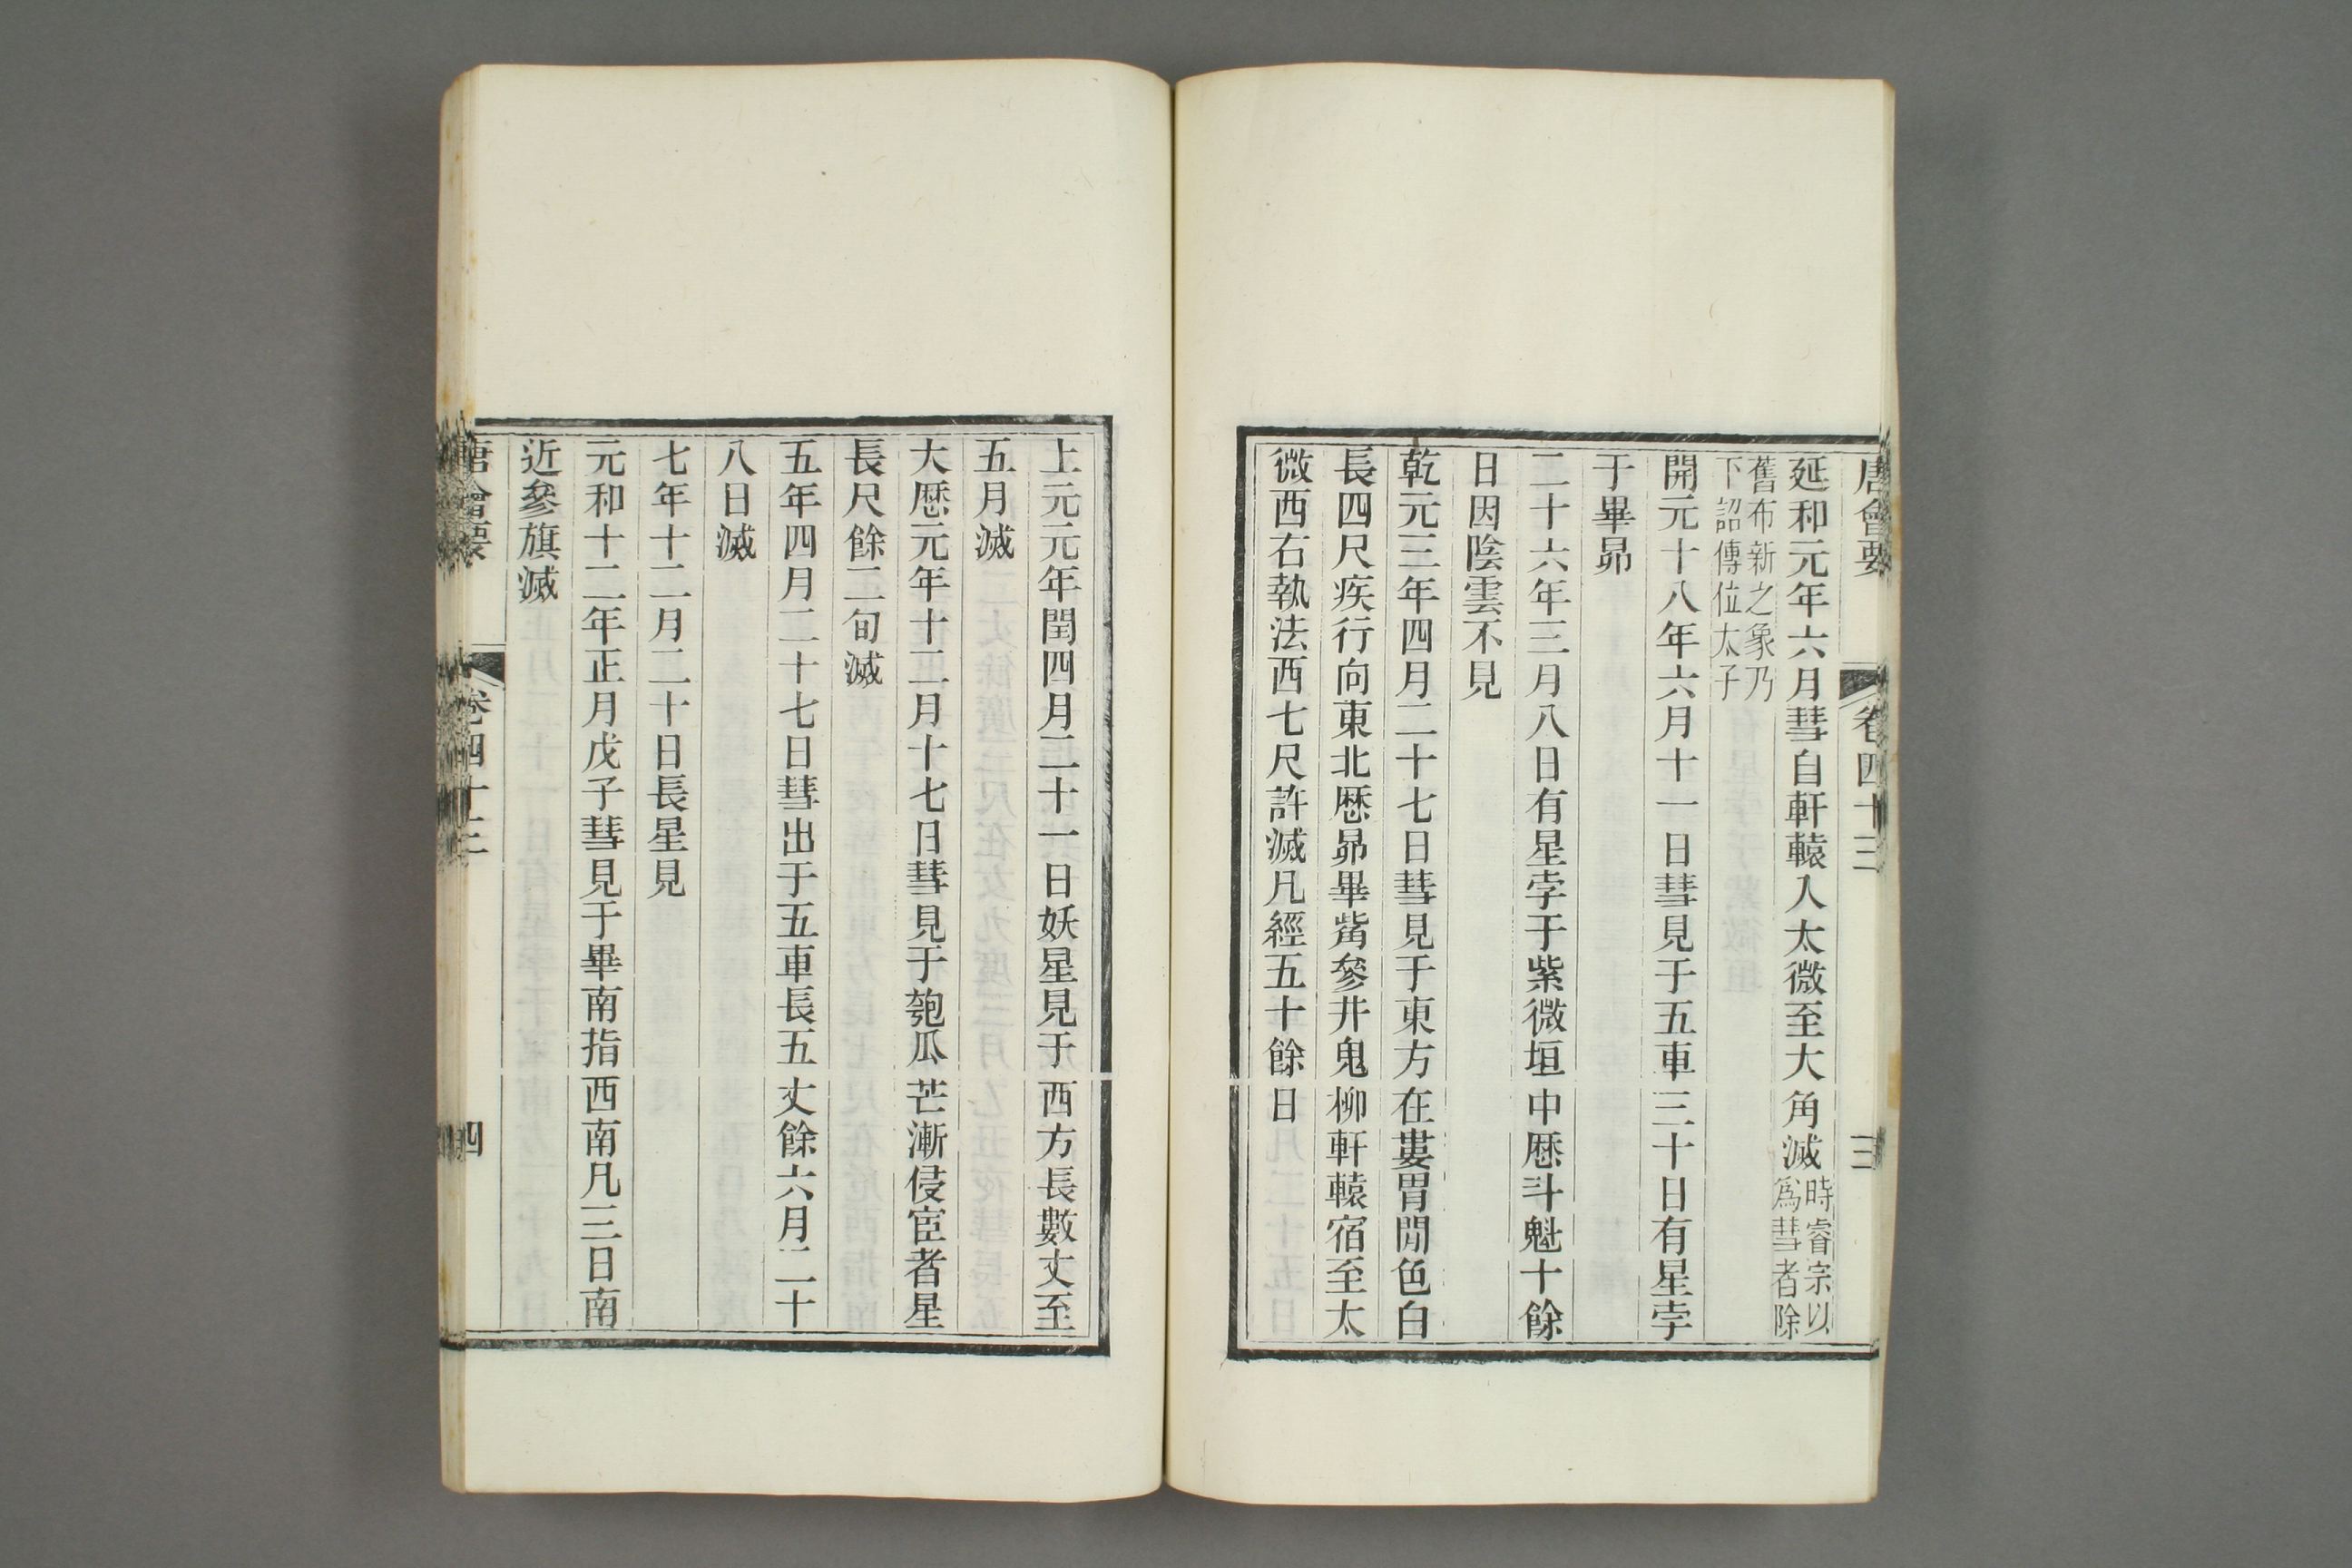 唐會要 卷四十三 三
延和元年六月彗自軒轅入太微至大角滅時睿宗以爲彗者除
舊布新之象乃下詔傳位太子
開元十八年六月十一日彗見于五車三十日有星孛
于畢昴
二十六年三月八日有星孛于紫微垣中歴斗魁十餘
日因陰雲不見
乾元三年四月二十七日彗見于東方在婁胃閒色白
長四尺疾行向東北歴昴畢觜參井鬼柳軒轅宿至太
微西右執法西七尺許滅凡經五十餘日
上元元年閏四月二十一日妖星見于西方長數丈至
五月滅
大歴元年十二月十七日彗見于匏瓜芒漸侵宦者星
長尺餘二旬滅
五年四月二十七日彗出于五車長五丈餘六月二十
八日滅
七年十二月二十日長星見
元和十二年正月戊子彗見于畢南指西南凡三日南
近參旗滅
唐會要 卷四十三 四